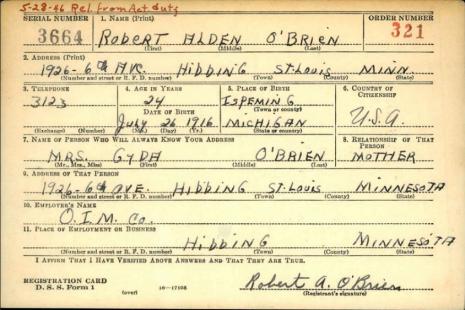 5-28-46 Rel. from Act. duty
SERIAL NUMBER 1. NAME (Print) ORDER NUMBER
3664 ROBERT ALDEN O'BRIEN 321
(First) (Middle) (Last)
2. ADDRESS (Print)
1926-6th AVE. HIBBING ST. LOUIS MINN.
(Number and street or R. F. D. number) (Town) (County) (State)
3. TELEPHONE 4. AGE IN YEARS 5. PLACE OF BIRTH 6. COUNTRY OF CITIZENSHIP
3123 24 ISPEMING
DATE OF BIRTH (Town or county)
July 26 1916 MICHIGAN U.S.A.
(Exchange) (Number) (Mo.) (Day) (Yr.) (State or country)
7. NAME OF PERSON WHO WILL ALWAYS KNOW YOUR ADDRESS 8. RELATIONSHIP OF THAT PERSON
MRS. GYDA O'BRIEN MOTHER
(Mr., Mrs., Miss) (First) (Middle) (Last)
9. ADDRESS OF THAT PERSON
1926-6th AVE. HIBBING ST. LOUIS MINNESOTA
(Number and street or R. F. D. number) (Town) (County) (State)
10. EMPLOYER'S NAME
O.I.M. Co.
11. PLACE OF EMPLOYMENT OR BUSINESS
HIBBING MINNESOTA
(Number and street or R. F. D. number) (Town) (County) (State)
I AFFIRM THAT I HAVE VERIFIED ABOVE ANSWERS AND THAT THEY ARE TRUE.
REGISTRATION CARD
D. S. S. Form 1 (over) 16-17105 Robert A. O'Brien
(Registrant's signature)